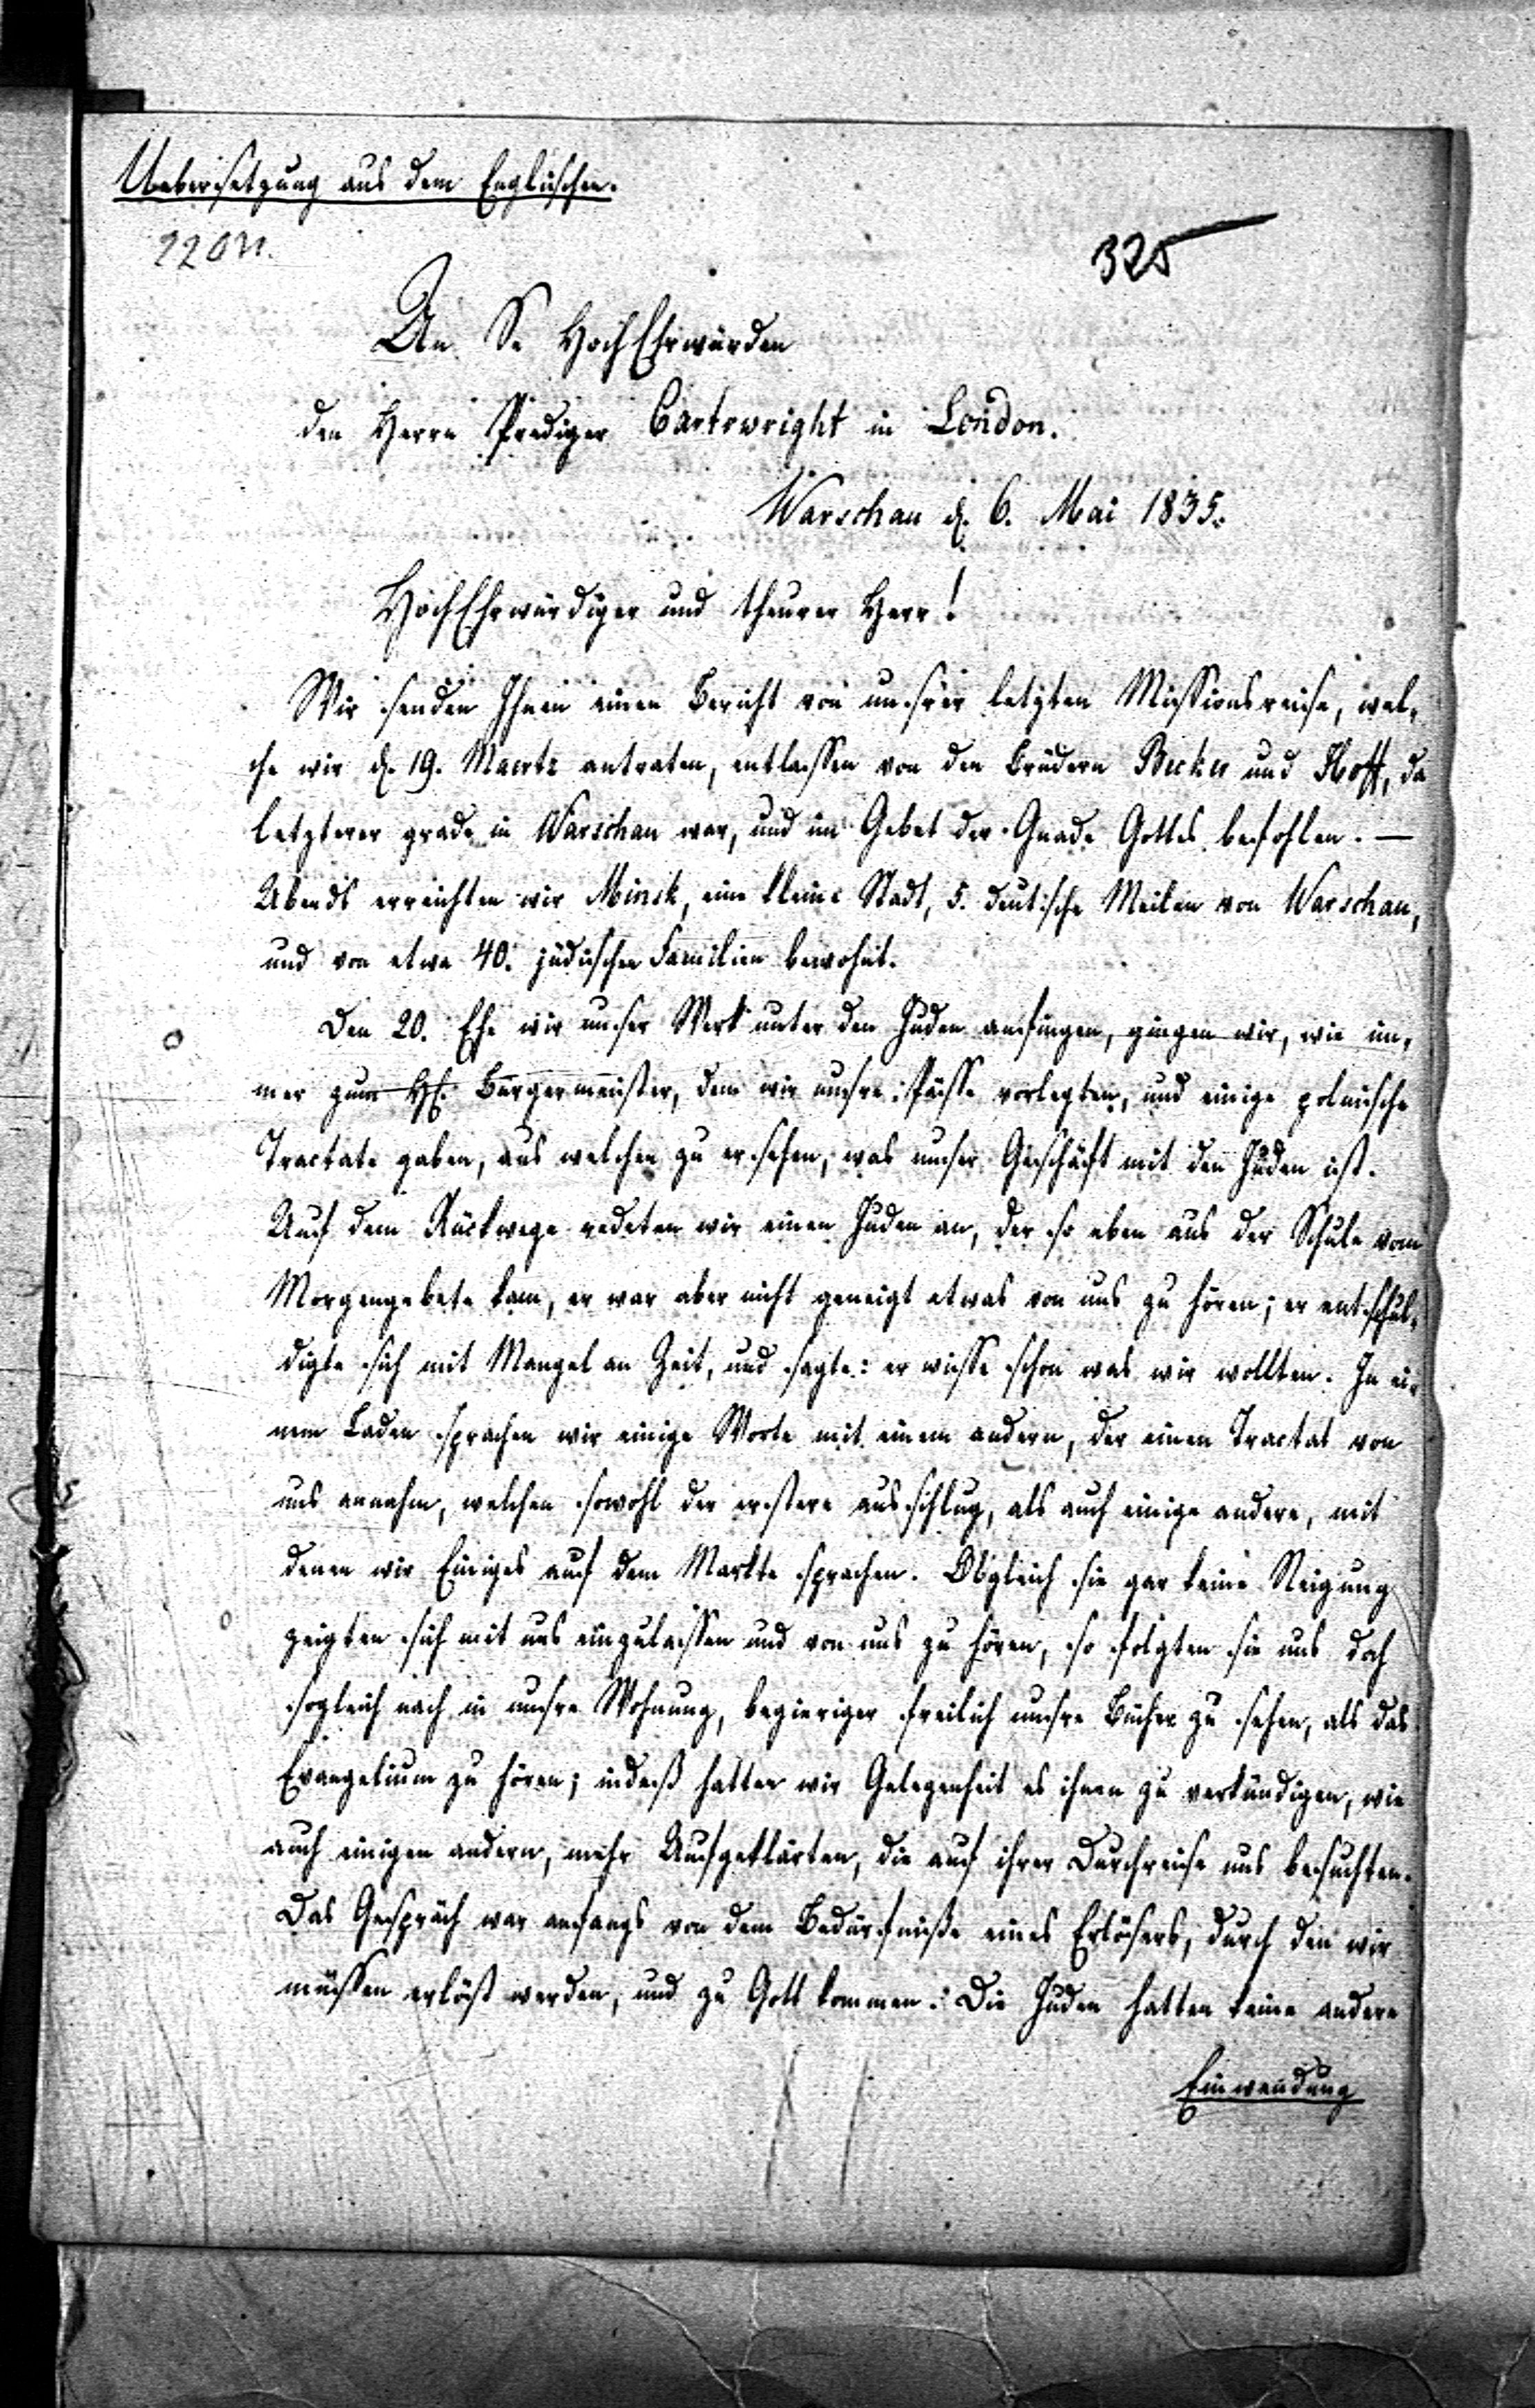 Uebersetzung aus dem Englischen.
220n.
325
An Se HochEhrwürden
den Herrn Prediger Cartwright in London.
Warschau d. 6. Mai 1835.
HochEhrwürdiger und theurer Herr!
Wir senden Ihnen einen Bericht von unsrer letzten Missionsreise, wel-
che wir d. 19. Maertz antraten, entlassen von den Brüdern Becker und Hoff, da
letzterer grade in Warschau war, und im Gebet der Gnade Gottes befohlen. —
Abends erreichten wir Minsk, eine kleine Stadt, 5. deutsche Meilen von Warschau,
und von etwa 40. jüdischen Familien bewohnt.
Den 20. Ehe wir unser Werk unter den Juden anfingen, gingen wir, wie im-
mer zum H. Bürgermeister, dem wir unsre Pässe vorlegten, und einige polnische
Tractate gaben, aus welchen zu ersehen, was unser Geschäft mit den Juden ist.
Auf dem Rückwege redeten wir einen Juden an, der so eben aus der Schule vom
Morgengebete kam, er war aber nicht geneigt etwas von uns zu hören; er entschul-
digte sich mit Mangel an Zeit, und sagte: er wisse schon was wir wollten. In ei-
nem Laden sprachen wir einige Worte mit einem andern, der einen Tractat von
uns annahm, welchen sowohl der erstere ausschlug, als auch einige andere, mit
denen wir Einiges auf dem Markte sprachen. Obgleich sie gar keine Neigung
zeigten sich mit uns einzulassen und von uns zu hören, so folgten sie uns doch
sogleich nach in unsre Wohnung, begieriger freilich unsre Bücher zu sehen, als das
Evangelium zu hören; indeß hatten wir Gelegenheit es ihnen zu verkündigen, wie
auch einigen andern, mehr Aufgeklärten, die auf ihrer Durchreise uns besuchten.
Das Gespräch war anfangs von dem Bedürfniße eines Erlösers, durch den wir
müssen erlöst werden, und zu Gott kommen. Die Juden hatten keine andere
Einwendung